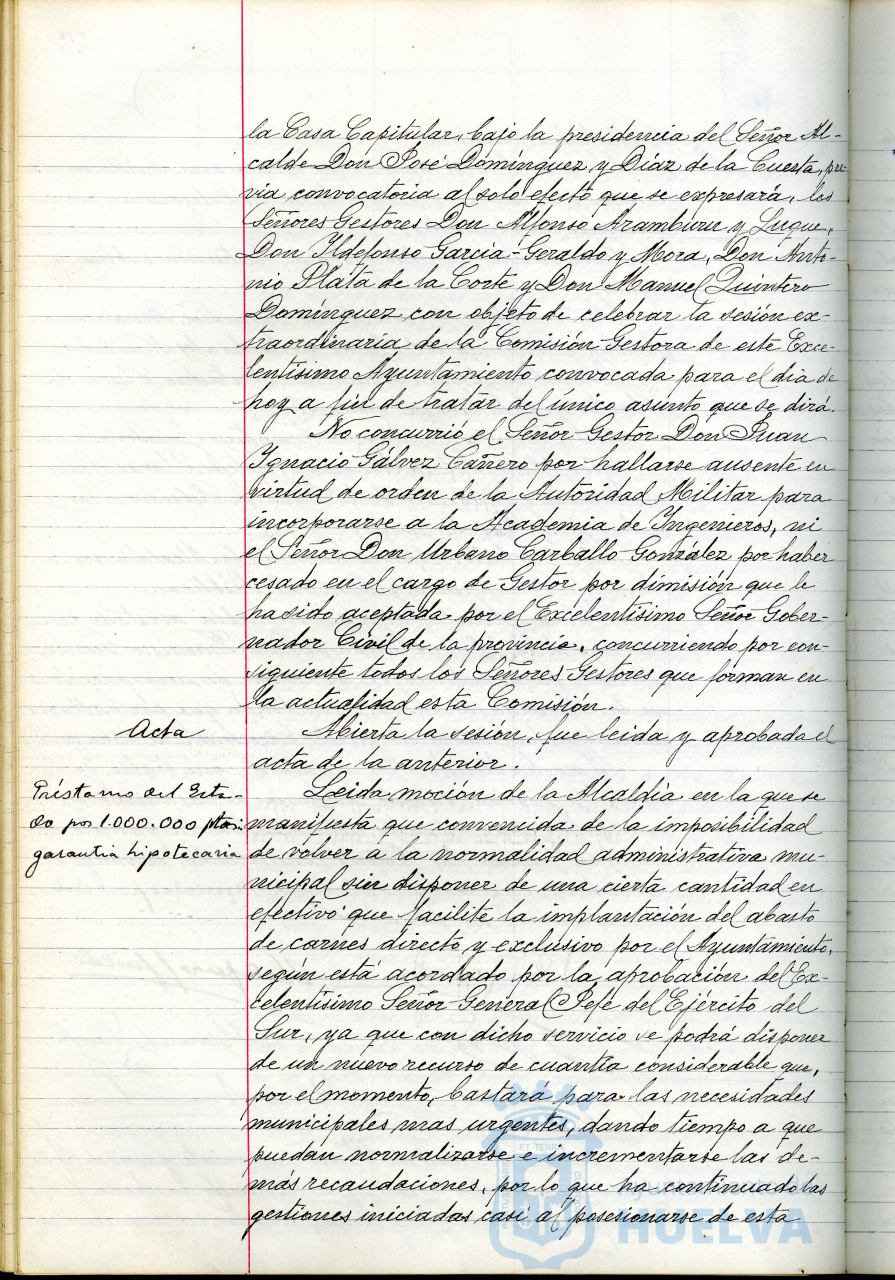 la Casa Capitular, bajo la presidencia del Señor Al-
calde Don José Domínguez y Díaz de la Cuesta, pre-
via convocatoria al solo efecto que se expresará, los
Señores Gestores Don Alfonso Aramburu y Luque,
Don Ildefonso García-Geraldo y Mora, Don Anto-
nio Plata de la Corte y Don Manuel Quintero
Domínguez con objeto de celebrar la sesión ex-
traordinaria de la Comisión Gestora de este Exce-
lentísimo Ayuntamiento convocada para el dia de
hoy a fin de tratar del único asunto que se dirá.
No concurrió el Señor Gestor Don Juan
Ignacio Gálvez Cañero por hallarse ausente en
virtud de orden de la Autoridad Militar para
incorporarse a la Academia de Ingenieros, ni
el Señor Don Urbano Carballo González por haber
cesado en el cargo de Gestor por dimisión que le
ha sido aceptada por el Excelentísimo Señor Gober-
nador Civil de la provincia, concurriendo por con-
siguiente todos los Señores Gestores que forman en
la actualidad esta Comisión.
Acta
Abierta la sesión, fue leida y aprobada el
acta de la anterior.
Préstamo del Esta-
do por 1.000.000 ptas.
garantía hipotecaria
Leida moción de la Alcaldía en la que se
manifiesta que convencida de la imposibilidad
de volver a la normalidad administrativa mu-
nicipal sin disponer de una cierta cantidad en
efectivo que facilite la implantación del abasto
de carnes directo y exclusivo por el Ayuntamiento,
según está acordado por la aprobación del Ex-
celentísimo Señor General Jefe del Ejército del
Sur, ya que con dicho servicio se podrá disponer
de un nuevo recurso de cuantía considerable que,
por el momento, bastará para las necesidades
municipales mas urgentes, dando tiempo a que
puedan normalizarse e incrementarse las de-
más recaudaciones, por lo que ha continuado las
gestiones iniciadas casi al posesionarse de esta
HUELVA